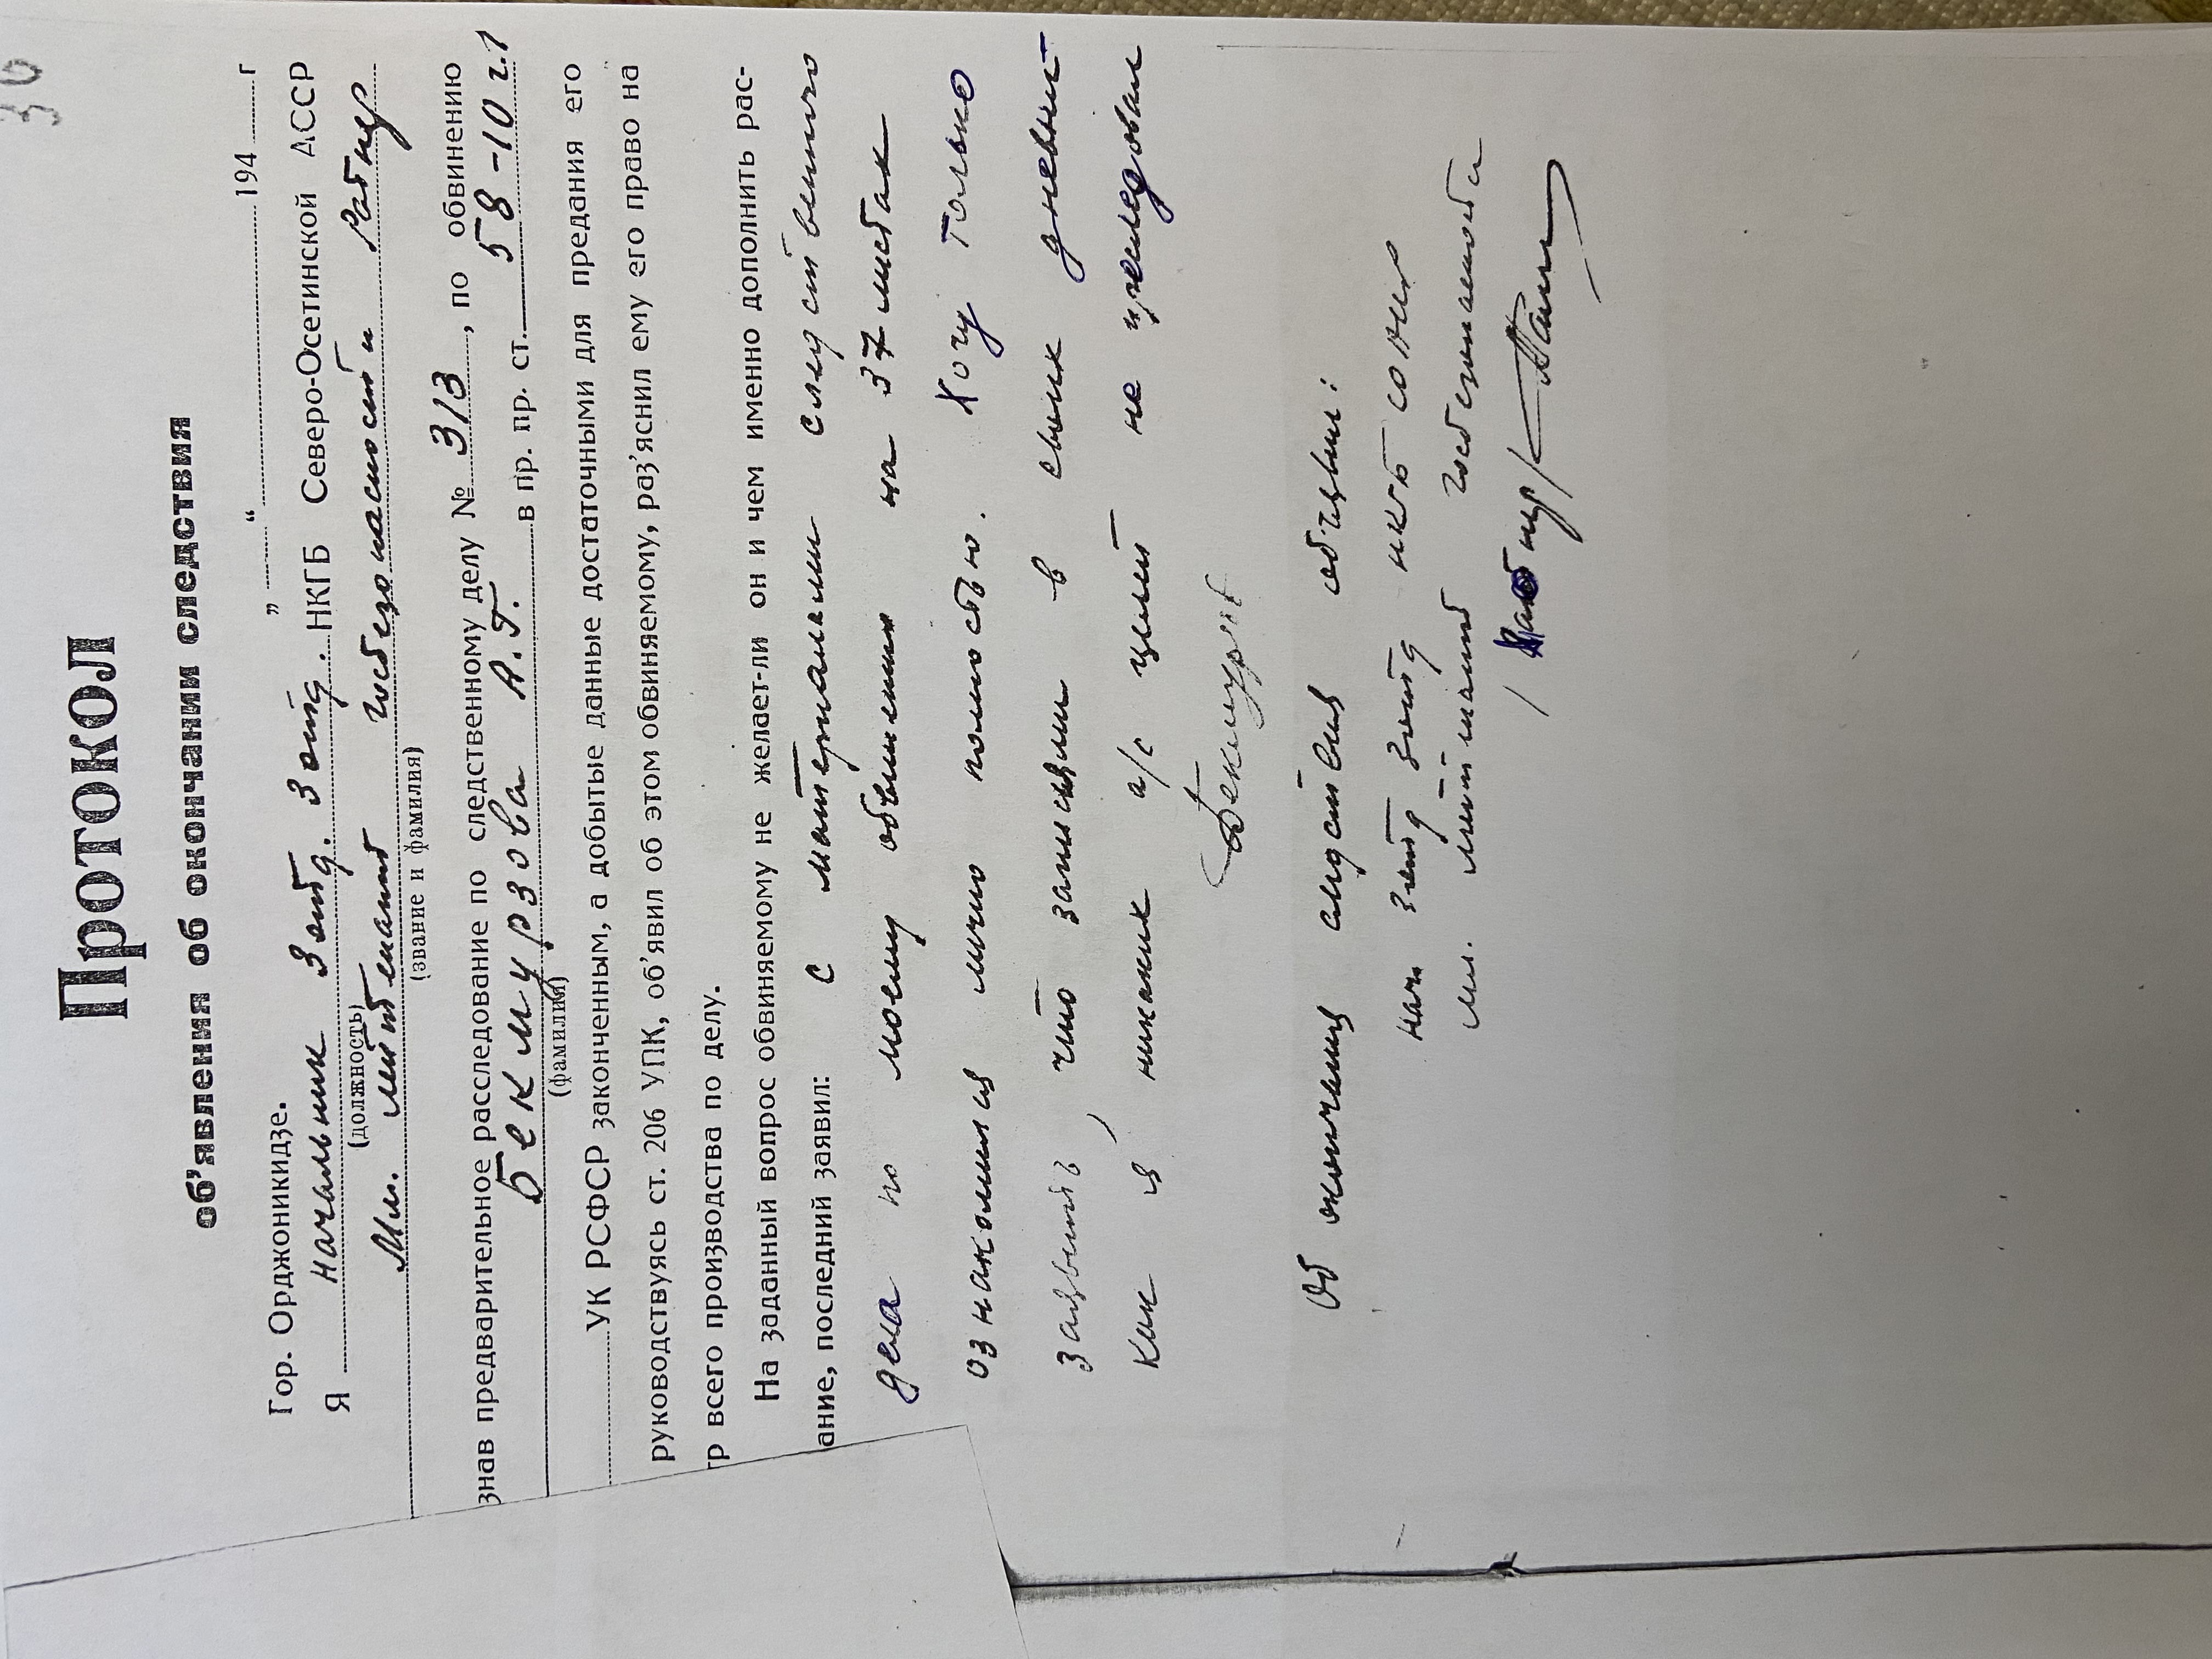 30
Протокол
об'явления об окончании следствия
Гор. Орджоникидзе. „ “ 194 г
Я начальник 3 отд. 3 отд. НКГБ Северо-Осетинской АССР
(должность)
Мл. лейтенант госбезопасности Ратнер
(звание и фамилия)
знав предварительное расследование по следственному делу № 313, по обвинению
Бекмурзова А.Г. в пр. пр. ст. 58-10 ч.1
(фамилия)
УК РСФСР законченным, а добытые данные достаточными для предания его
руководствуясь ст. 206 УПК, об'явил об этом обвиняемому, раз'яснил ему его право на
тр всего производства по делу.
На заданный вопрос обвиняемому не желает-ли он и чем именно дополнить рас-
ание, последний заявил: С материалами следственного
дела по моему обвинению на 37 листах
ознакомился лично полностью. Хочу только
заявить, что записями в своих дневни-
ках я никаких а/с целей не преследовал
Бекмурзов
Об окончании следствия об'явил:
нач. 3 отд 3 отд НКГБ СОАССР
мл. лейтенант госбезопасности
/Ратнер/